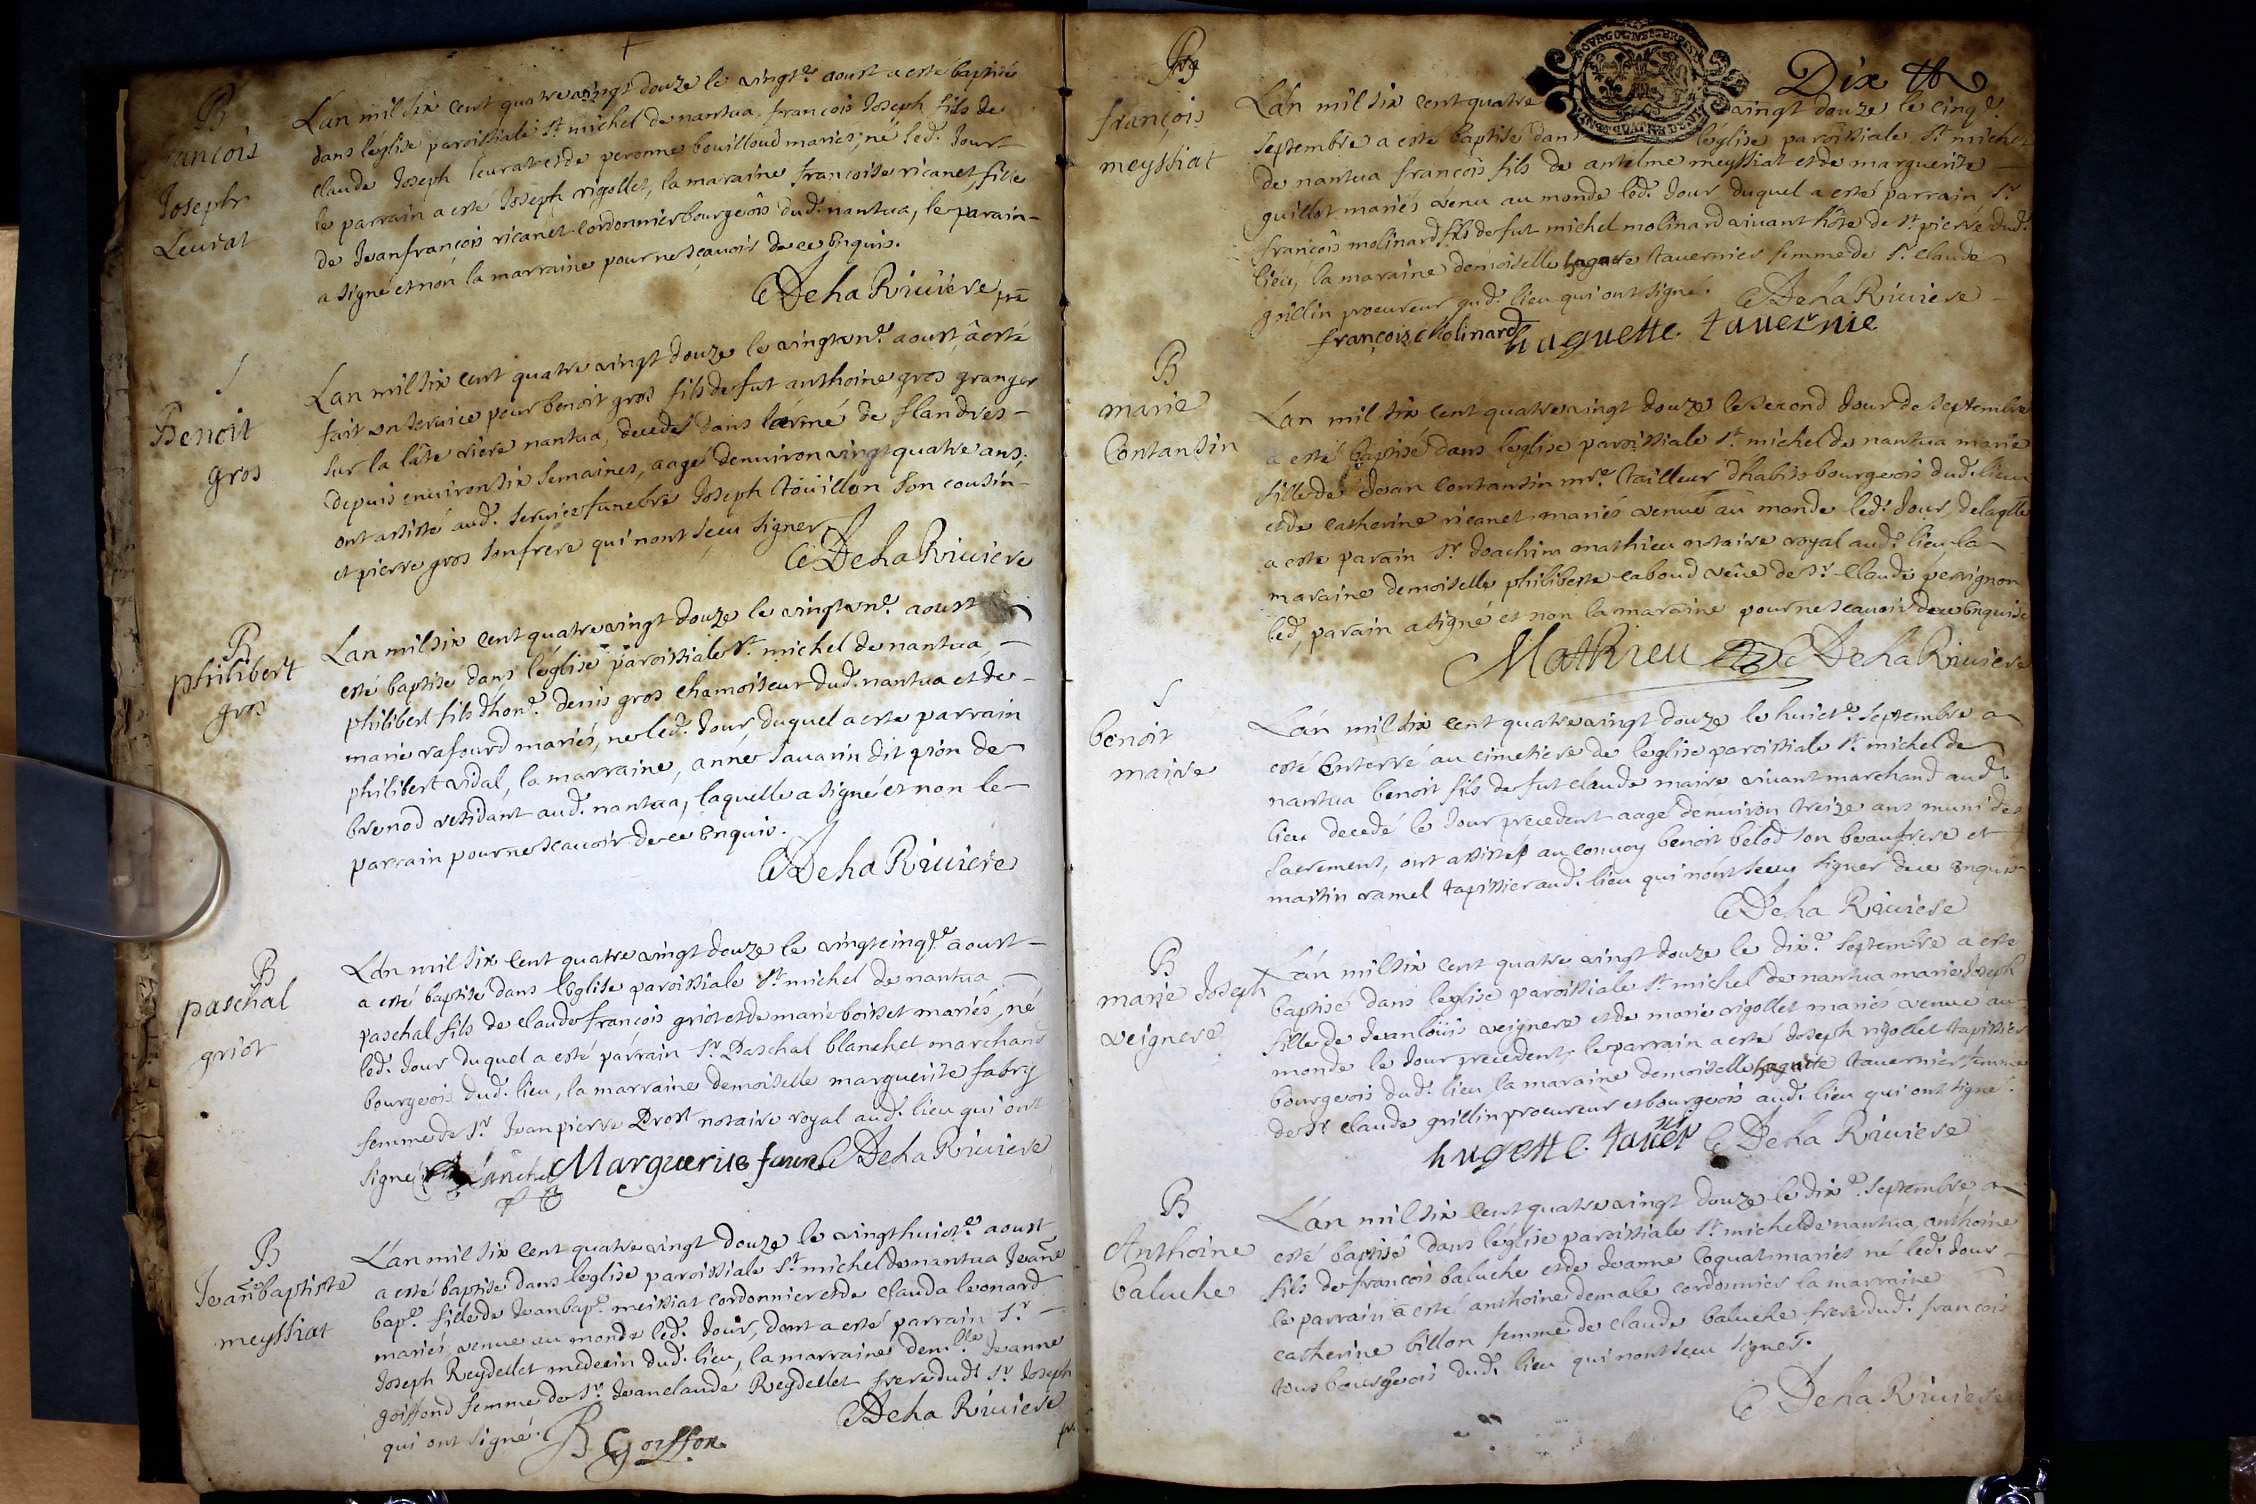 B
françois
Joseph
Leurat
Lan mil six cent quatre vingt douze le vingt.e aoust a esté baptisé
dans léglise paroissiale st michel de nantua françois Joseph fils de
claude Joseph leurat et de peronne bouilloud mariés, né led. Jour
le parrain a esté Joseph rigollet, la maraine francoise ricanet fille
de Jean françois ricanet cordonnier bourgeois dud. nantua, le parain
a signé et non la marraine pour ne scauoir de ce Enquis.
C DehaRiuiere
S
Benoit
gros
Lan mil six cent quatre vingt douze le vingt vn.e aoust, a esté
fait vn seruice pour benoit gros fils de fut anthoine gros granger
sur la lâte riere nantua, decedé dans larmé de flandres
depuis enuiron six semaines, aagé denuiron vingt quatre ans,
ont assisté aud. seruice funebre Joseph toüillon son cousin
et pierre gros son frere qui nont sceu signer
C DehaRiuiere
B
philibert
gros
Lan mil six cent quatre vingt douze le vingt vn.e aoust
esté baptisé dans léglise paroissiale st. michel de nantua,
philibert fils dhon.e denis gros chamoiseur dud. nantua et de
marie rafourd mariés, né led. Jour, duquel a esté parrain
philibert vidal, la marraine, anne sauarin dit pion de
brenod residant aud. nantua, laquelle a signé et non le
parrain pour ne scauoir de ce Enquis.
C DehaRiuiere
B
paschal
griot
Lán mil six cent quatre vingt douze le vingt cinq.e aoust
a esté baptisé dans l'Eglise paroissiale st michel de nantua
paschal fils de claude françois griot et de marie boisset mariés, né
led. Jour duquel a esté párrain sr Paschal blanchet marchand
bourgeois dud. lieu, la marraine demoiselle marguerite fabry
femme de sr Jean pierre Prost notaire royal aud. lieu qui ont
signé Marguerite C DehaRiuiere
B
Jeanne baptiste
meyssiat
Lán mil six cent quatre vingt douze le vingt huict.e aoust
a esté baptisée dans leglise paroissiale st michel de nantua Jeanne
bap.e fille de Jean bap.e meissiat cordonnier et de clauda leonard
mariés, venue au monde led. Jour, dont a esté parrain sr
Joseph Reydellet medecin dud. lieu, la marraine dem.lle Jeanne
goiffond femme de sr. Jean claude Reydellet frere dud. sr Joseph
qui ont signé. B Goiffon. C Deha Riuiere
B
françois
meyssiat
Dix
Lán mil six cent quatre vingt douze le cinq.e
septembre a esté baptisé dans leglise paroissiale st. michel
de nantua françois fils de antelme meyssiat et de marguerite
guillot mariés venu au monde led. Jour duquel a esté parrain sr
françois molinard fils de fut michel molinard viuant hôte de st. pierre dud.
lieu, la maraine demoiselle hugette tauernier femme de sr claude
grillin procureur aud. lieu qui ont signé. C DehaRiuiere
françois Molinard huguette. tauernie
B
marie
Contansin
Lán mil six cent quatre vingt douze le second Jour de septembre
a esté baptisé dans leglise paroissiale st michel de nantua marie
fille de Jean contansin mre. tailleur d'habits bourgeois dud. lieu
et de catherine ricanet mariés venue au monde led. Jour, de laqlle
a esté parain sr Joachim mathieu notaire royal aud. lieu la
maraine demoiselle philiberte caboud veuve de sr. claude pessignon
led. parain a signé et non la maraine pour ne scauoir de ce Enquise
Mathieu C DehaRiuiere
S
benoit
maire
Lán mil six cent quatre vingt douze le huict.e septembre a
esté Enterré au cimetiere de leglise paroissiale st. michel de
nantua benoit fils de fut claude maire viuant marchand aud.
lieu decedé le Jour precedent aagé denuiron treize ans muni des
sacrement, ont assistés au conuoy benoit belod son beaufrere et
martin ramel tapissier aud. lieu qui n'ont sceu signer de ce Enquis
C Deha Riuiere
B
marie Joseph
veignere
Lán mil six cent quatre vingt douze le dix.e septembre a esté
baptisé dans leglise paroissiale st michel de nantua marie Joseph
fille de Jean loüis veignere et de marie rigollet mariés venue au
monde le Jour precedent, le parrain a esté Joseph rigollet tapissier
bourgeois dud. lieu, la maraine demoiselle hugette tauernier femme
de sr claude grillin procureur et bourgeois aud. lieu qui ont signé.
hugette. C Deha Riuiere
B
Anthoine
baluche
Lán mil six cent quatre vingt douze le dix.e septembre, a
esté baptisé dans leglise paroissiale st michel de nantua, anthoine
fils de françois baluche et de Jeanne coquat mariés né led. Jour
le parrain a esté anthoine demale cordonnier la marraine
catherine billon femme de claude baluche frere dud. françois
tous bourgeois dud. lieu qui nont sceu signer.
C Deha Riuiere